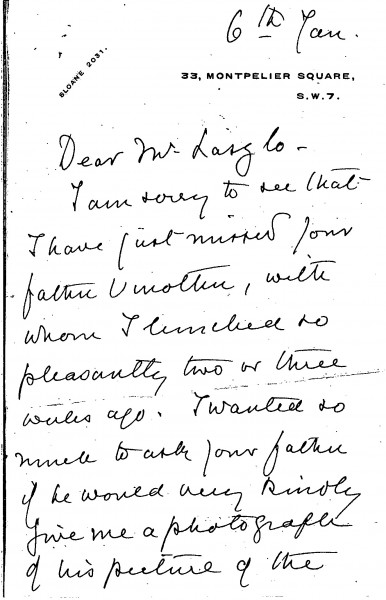 6th Jan.
SLOANE 2031.
33, MONTPELIER SQUARE,
S.W.7.
Dear Mr. Laszlo -
I am sorry to see that
I have just missed your
father & mother, with
whom I lunched so
pleasantly two or three
weeks ago. I wanted so
much to ask your father
if he would very kindly
give me a photograph
of his picture of the